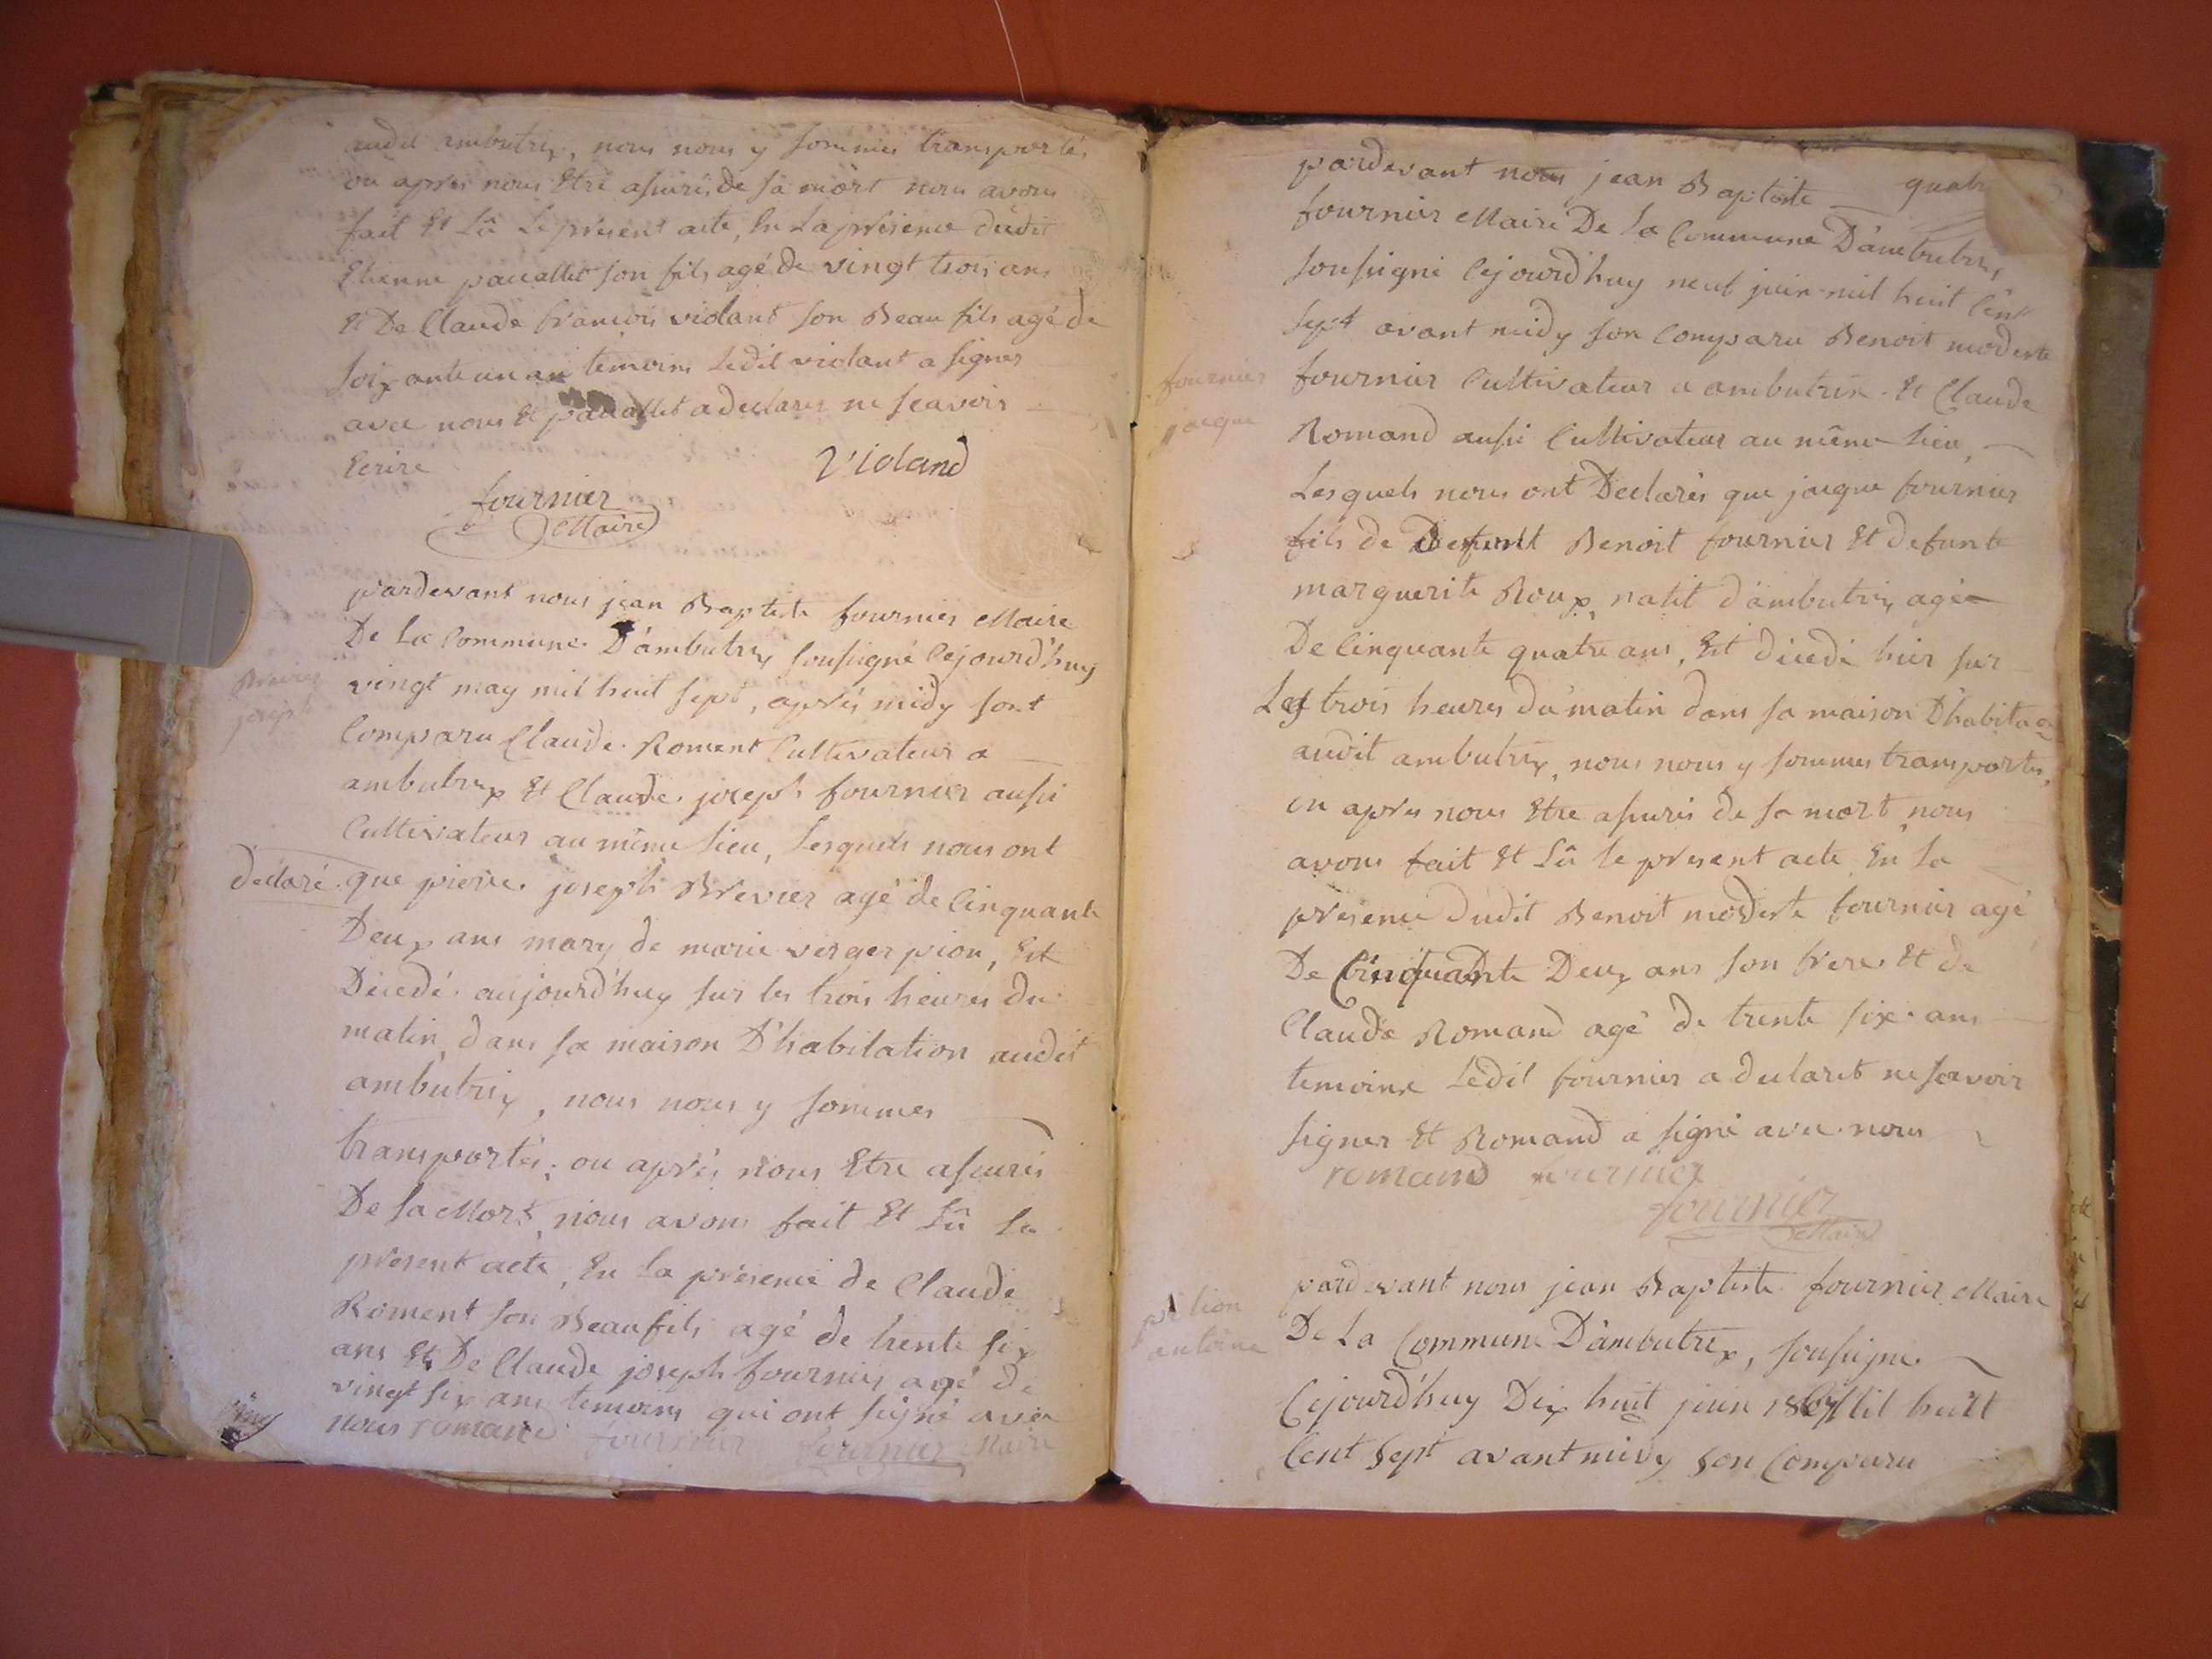 audit ambutrix, nous nous y sommes transportés
ou apres nous Etre assurés de sa mort nous avons
fait Et Lû Le présent acte, En La présence dudit
Etienne pavallet son fils agé de vingt trois ans
Et De Claude francois violant son Beau fils agé de
soixante un an temoins Ledit violant a signer
avec nous Et pavallet a declarer ne scavoir
Ecrire
Violand
fournier
Maire
pardevant nous jean Baptiste fournier Maire
De La Commune D'ambutrix soussigné Cejourd'huy
vingt may mil huit sept, aprés midy sont
Brevier
joseph
Comparu Claude Roment Cultivateur a
ambutrix Et Claude joseph fournier aussi
Cultivateur au même lieu, Lesquels nous ont
déclaré que pierre joseph Brevier agé de Cinquante
Deux ans mary de marie verger pion, Est
Décedé aujourd'huy sur les trois heures du
matin, dans sa maison D'habitation audit
ambutrix, nous nous y sommes
transportés, ou aprés nous Etre assurés
De sa Mort, nous avons fait Et Lû Le
présent acte, En La présence de Claude
Roment son Beaufils agé de trente six
ans Et De Claude joseph fournier agé de
vingt six ans temoins qui ont signé avec
nous romand fournier fournier Maire
pardevant nous jean Baptiste quatr
fournier Maire De La Commune D'ambutrix
soussigné Cejourd'huy neuf juin mil huit Cent
sept avant midy son Comparu Benoit modeste
fournier
jaque
fournier Cultivateur a ambutrix Et Claude
Romand aussi Cultivateur au même lieu,
Lesquels nous ont Declarés que jaque fournier
fils de Defunt Benoit fournier Et defunte
marguerite Roux, natif d'ambutrix agée
De Cinquante quatre ans, Est décedé hier sur
Les trois heures du matin dans sa maison D'habita on
audit ambutrix, nous nous y sommes transportés,
ou apres nous Etre assurés de sa mort, nous
avons fait Et Lû le présent acte En La
présence dudit Benoit modeste fournier agé
De Cinquante Deux ans son frere Et de
Claude Romand agé de trente six ans
temoins Ledit fournier a declaret ne scavoir
signer Et Romand a signé avec nous
romand fournier
fournier
Maire
pardevant nous jean Baptiste fournier Maire
antoine
De La Commune D'ambutrix, soussigné
Cejourd'huy Dix huit juin Mil huit
Cent Sept avant midy son Comparu